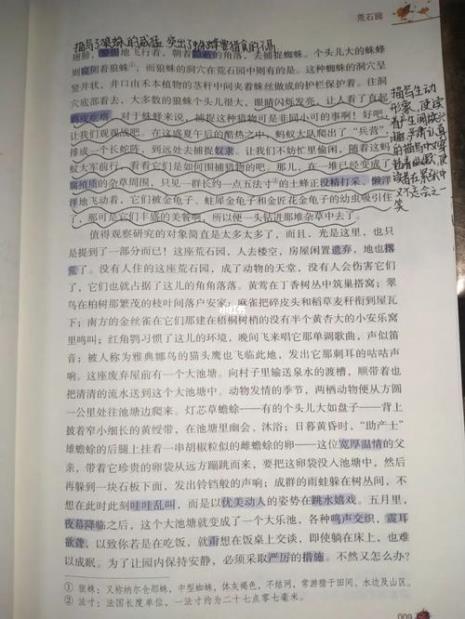 荒石园
描写了狼蛛的威猛，突出了蛛蜂要猎食的不易
翅膀，飞行着，朝着隐蔽的角落，去捕捉蜘蛛。个头儿大的蛛蜂
则窥伺着狼蛛①，而狼蛛的洞穴在荒石园中则有的是。这种蜘蛛的洞穴呈
竖井状，井口由禾本植物的茎秆中间夹着蛛丝做成的护栏保护着。往洞
穴底部看去，大多数的狼蛛个头儿很大，眼睛闪烁发亮，让人看了直起
鸡皮疙瘩。对于蛛蜂来说，捕捉这种猎物可是非同小可的事啊！好吧，
让我们观观战吧。在这盛夏午后的酷热之中，蚂蚁大队爬出了“兵营”，
排成一个长蛇阵，到远处去捕捉奴隶。让我们不妨忙里偷闲，随着这蚂
蚁大军前行，看看它们是如何围捕猎物的吧。那儿，在一堆已经变成了
腐殖质的杂草周围，只见一群长约一点五法寸②的土蜂正没精打采、懒洋
洋地飞动着，它们被金龟子、蛀犀金龟子和金匠花金龟子的幼虫吸引住
了，那可是它们丰盛的美餐啊，所以便一头钻进那堆杂草中去了。
描写生动
形象，使读
笑
值得观察研究的对象简直是太多太多了，而且，光是这里，也只
是提到了一部分而已！这座荒石园，人去楼空，房屋闲置遗弃，地也撂
荒了。没有人住的这座荒石园，成了动物的天堂，没有人会伤害它们
了，它们也就占据了这儿的角角落落。黄莺在丁香树丛中筑巢搭窝；翠
鸟在柏树那繁茂的枝叶间落户安家；麻雀把碎皮头和稻草麦秆衔到屋瓦
下；南方的金丝雀在它们那建在梧桐树梢的没有半个黄杏大的小安乐窝
里鸣叫；红角鸮习惯了这儿的环境，晚间飞来唱它那单调歌曲，声似笛
音；被人称为雅典娜鸟的猫头鹰也飞临此地，发出它那刺耳的咕咕声
响。这座废弃屋前有一个大池塘。向村子里输送泉水的渡槽，顺带着也
把清清的流水送到这个大池塘中。动物发情的季节，两栖动物便从方圆
一公里处往池塘边爬来。灯芯草蟾蜍——有的个头儿大如盘子——背上
披着窄小细长的黄绶带，在池塘里幽会、沐浴；日暮黄昏时，“助产士”
雄蟾蜍的后腿上挂着一串胡椒粒似的雌蟾蜍的卵——这位宽厚温情的父
亲，带着它珍贵的卵袋从远方蹦跳而来，要把这卵袋没入池塘中，然后
再躲到一块石板下面，发出铃铛般的声响；成群的雨蛙躲在树丛间，不
想在此时此刻哇哇乱叫，而是以优美动人的姿势在跳水嬉戏。五月里，
夜幕降临之后，这个大池塘就变成了一个大乐池，各种鸣声交织，震耳
欲聋，以致你若是在吃饭，就甭想在饭桌上交谈，即使躺在床上，也难
以成眠。为了让园内保持安静，必须采取严厉的措施。不然又怎么办？
① 狼蛛：又称纳尔仓那蛛，中型蜘蛛，体灰褐色，不结网，常游猎于田间、水边及山区。
② 法寸：法国长度单位，一法寸约为二十七点零七毫米。
009